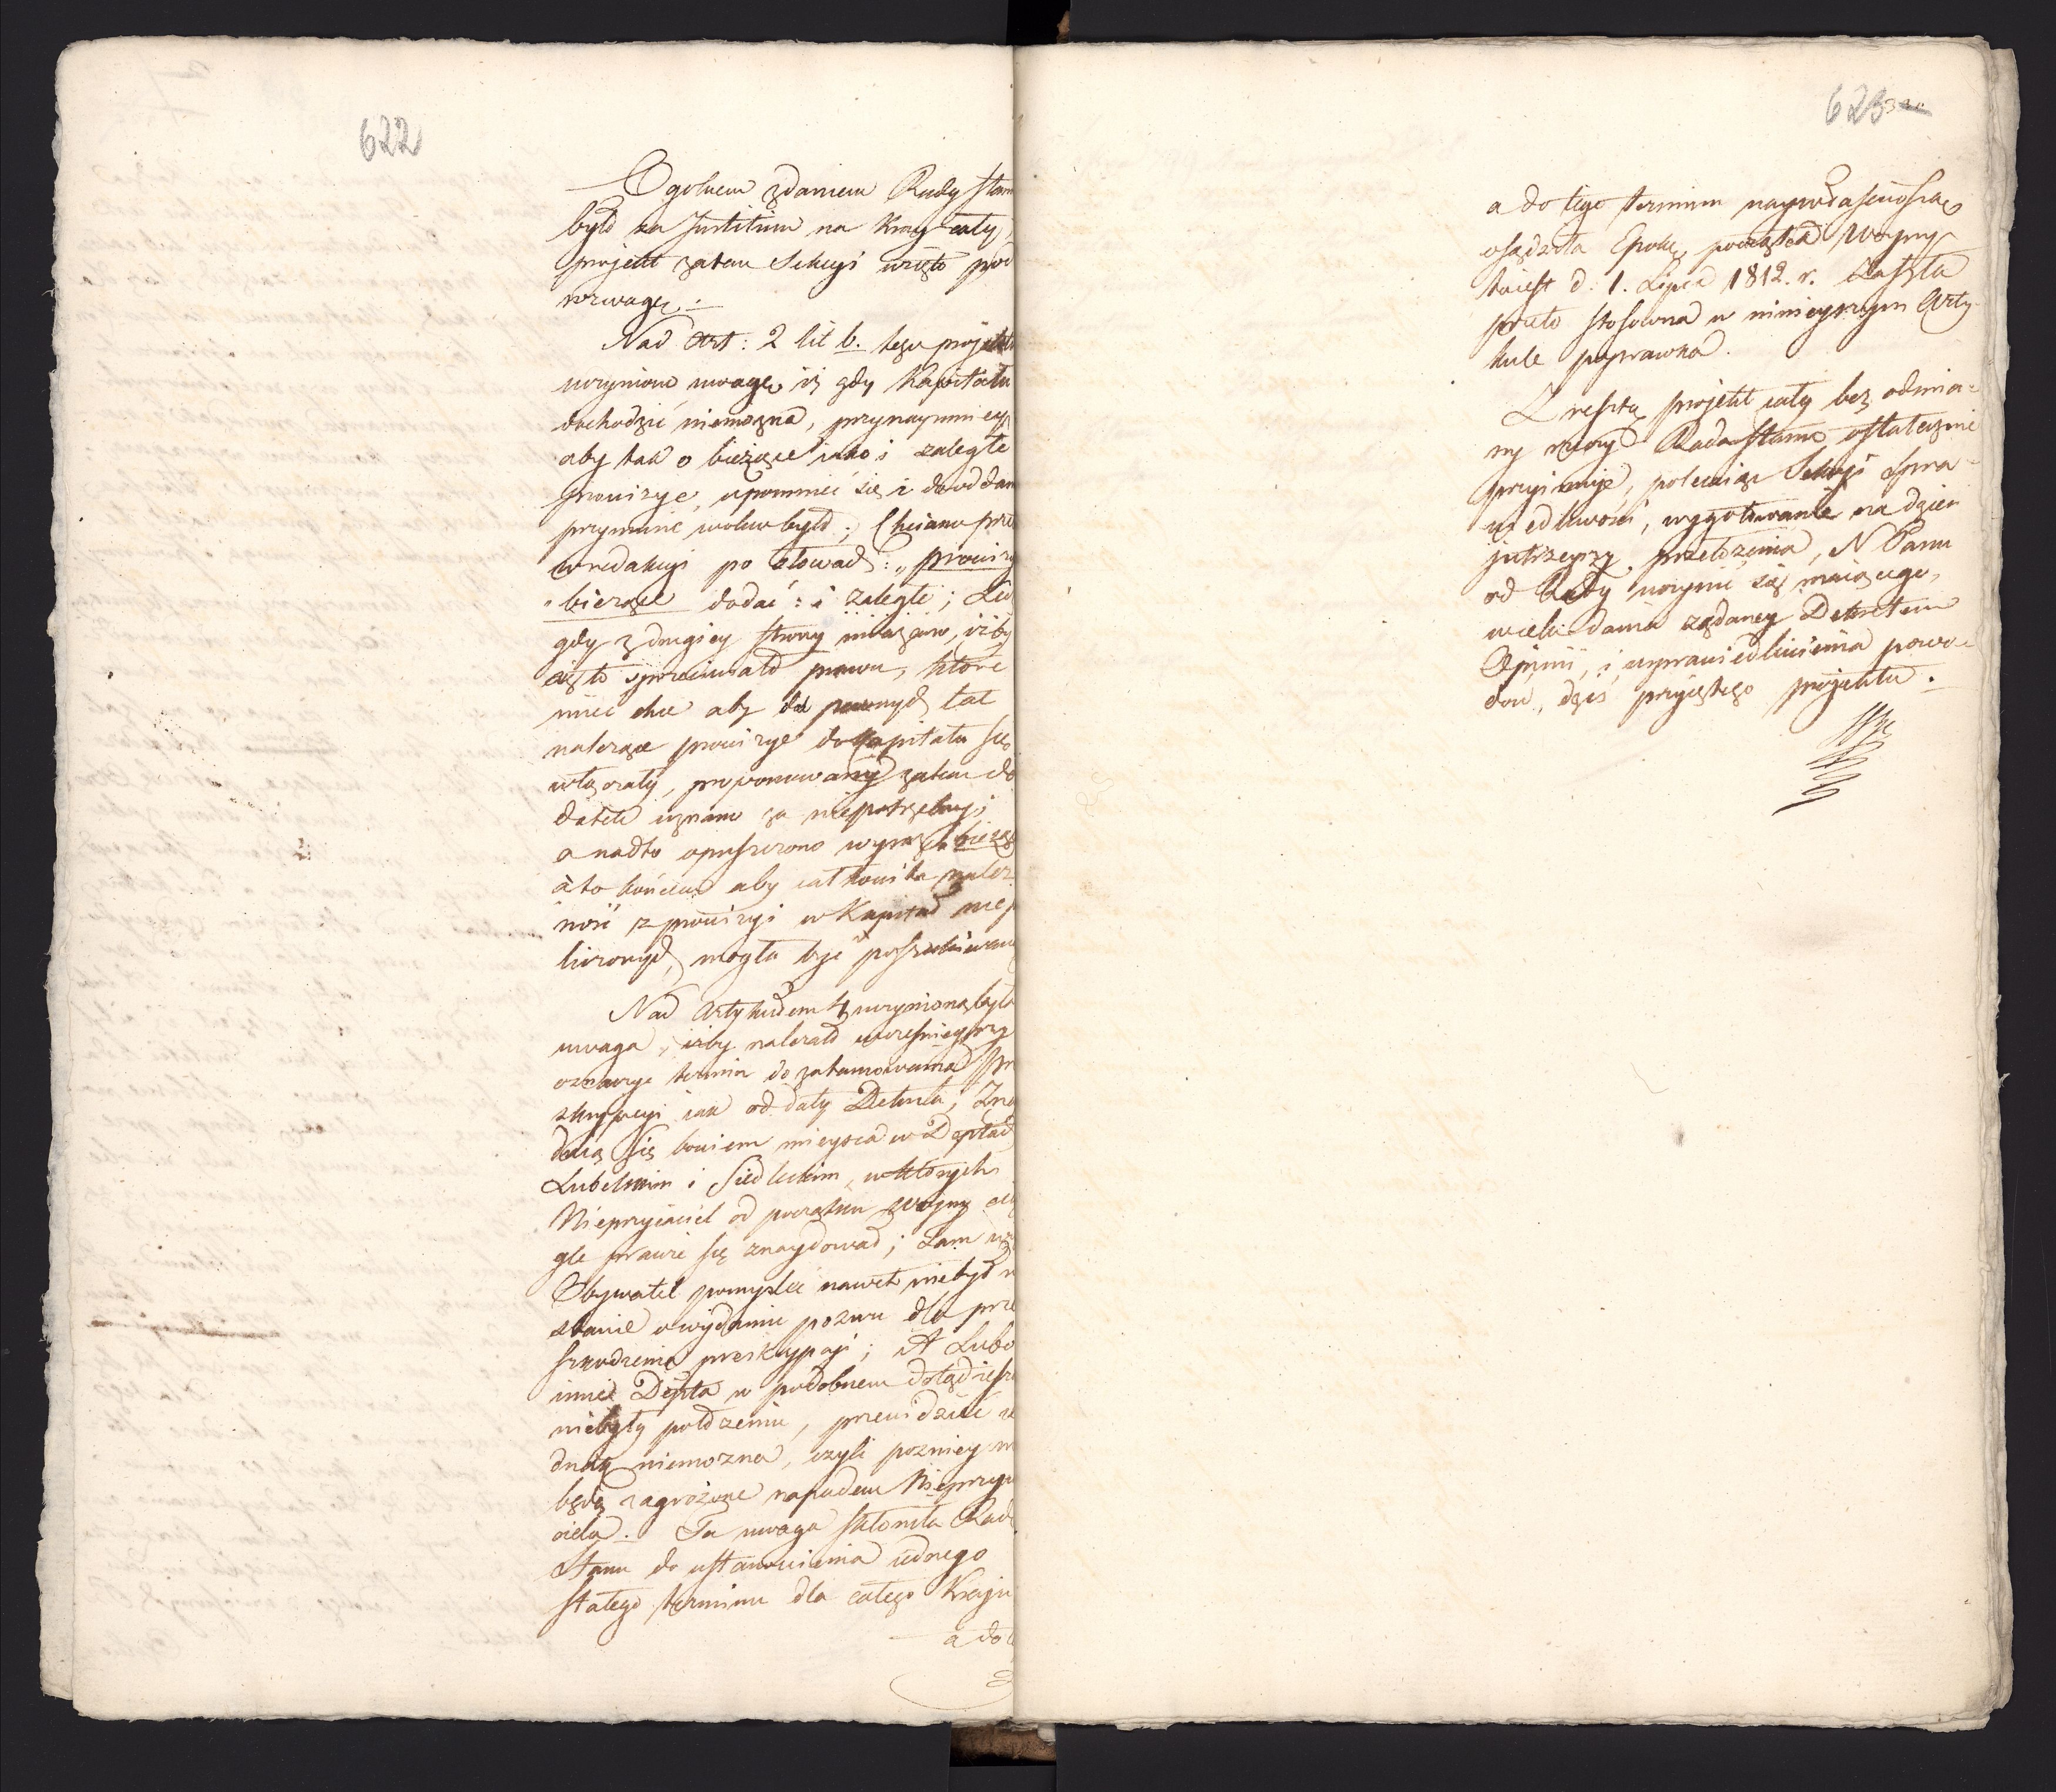 622
Ogolnem zdaniem Rady Stan
było za Justitium na Kray cały,
projekt zatem Sekcyi wzięto pod
rozwagę. —
Nad Art: 2 lit b. tego projektu
uczyniono uwagę, iż gdy Kapitału
dochodzić niemożna, przynaymniey
aby tak o bieżące iako i zaległe
prowizye, upomnieć się i do oddan
przymusić wolno było; Chciano prze
w redakcyi po słowach: „prowizy
„bieżące dodać: i zaległe; Lecz
gdy z drugiey strony uważano, iżby
się to sprzeciwiało prawu, które
mieć chce aby od pewnych lat
należące prowizye do Kapitału się
wtączały, proponowany zatem do
datek uznano za niepotrzebny;
a nadto opuszczono wyraz bieżąc
à to końcem aby całkowita należ
ność z prowizyi w Kapitał nie p
liczonych, mogła być poszukiwaną
Nad Artykułem 4 uczyniona była
uwaga, iżby należało wcześnieyszy
oznaczyć termin do zatamowania Pre
skrypcyi iak od daty Dekretu; Zna
duią się bowiem mieysca w Deptach
Lubelskim i Siedleckim, w których
Nieprzyiaciel od początku Woyny cią
gle prawie się znaydował; Tam wię
Obywatel pomyśleć nawet niebył w
stanie o wydaniu pozwu dla prze
szkodzenia preskrypcyi; A Lubo
inne Depta w podobnem dotąd ieszcze
niebyły położeniu, przewidzieć ie
dnak niemożna, czyli pozniey nie
będą zagrożone napadem Nieprzyia
ciela. Ta uwaga skłoniła Radę
Stanu do ustanowienia iednego
stałego terminu dla całego Kraju
a do t
623
a do tego terminu naywłaściwszą
osądziła Epokę, początek Woyny
to iest d. 1. Lipca 1812. r. Zaszła
przeto stosowna w ninieyszym Arty-
kule poprawka.
Z resztą projekt cały bez odmia=
ny rzeczy Rada Stanu ostatecznie
przyimuje, polecając Sekcyi Spra=
wiedliwości, wygotowanie na dzień
jutrzeyszy przełożenia, N Panu
od Rady uczynić się maiącego,
względem żądaney Dekretem
Opinii, i usprawiedliwienia powo=
dow, dziś przyiętego projektu.